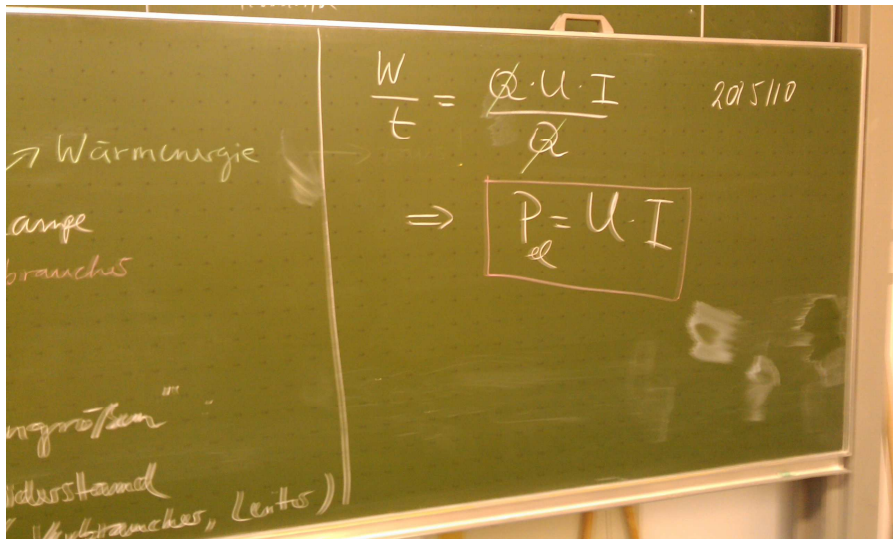 ↗ Wärmenergie
ampe
braucher
größen"
iderstand
Verbraucher, Leiter)
W/t = Q·U·I/Q
2015/10
⇒ P_el = U·I